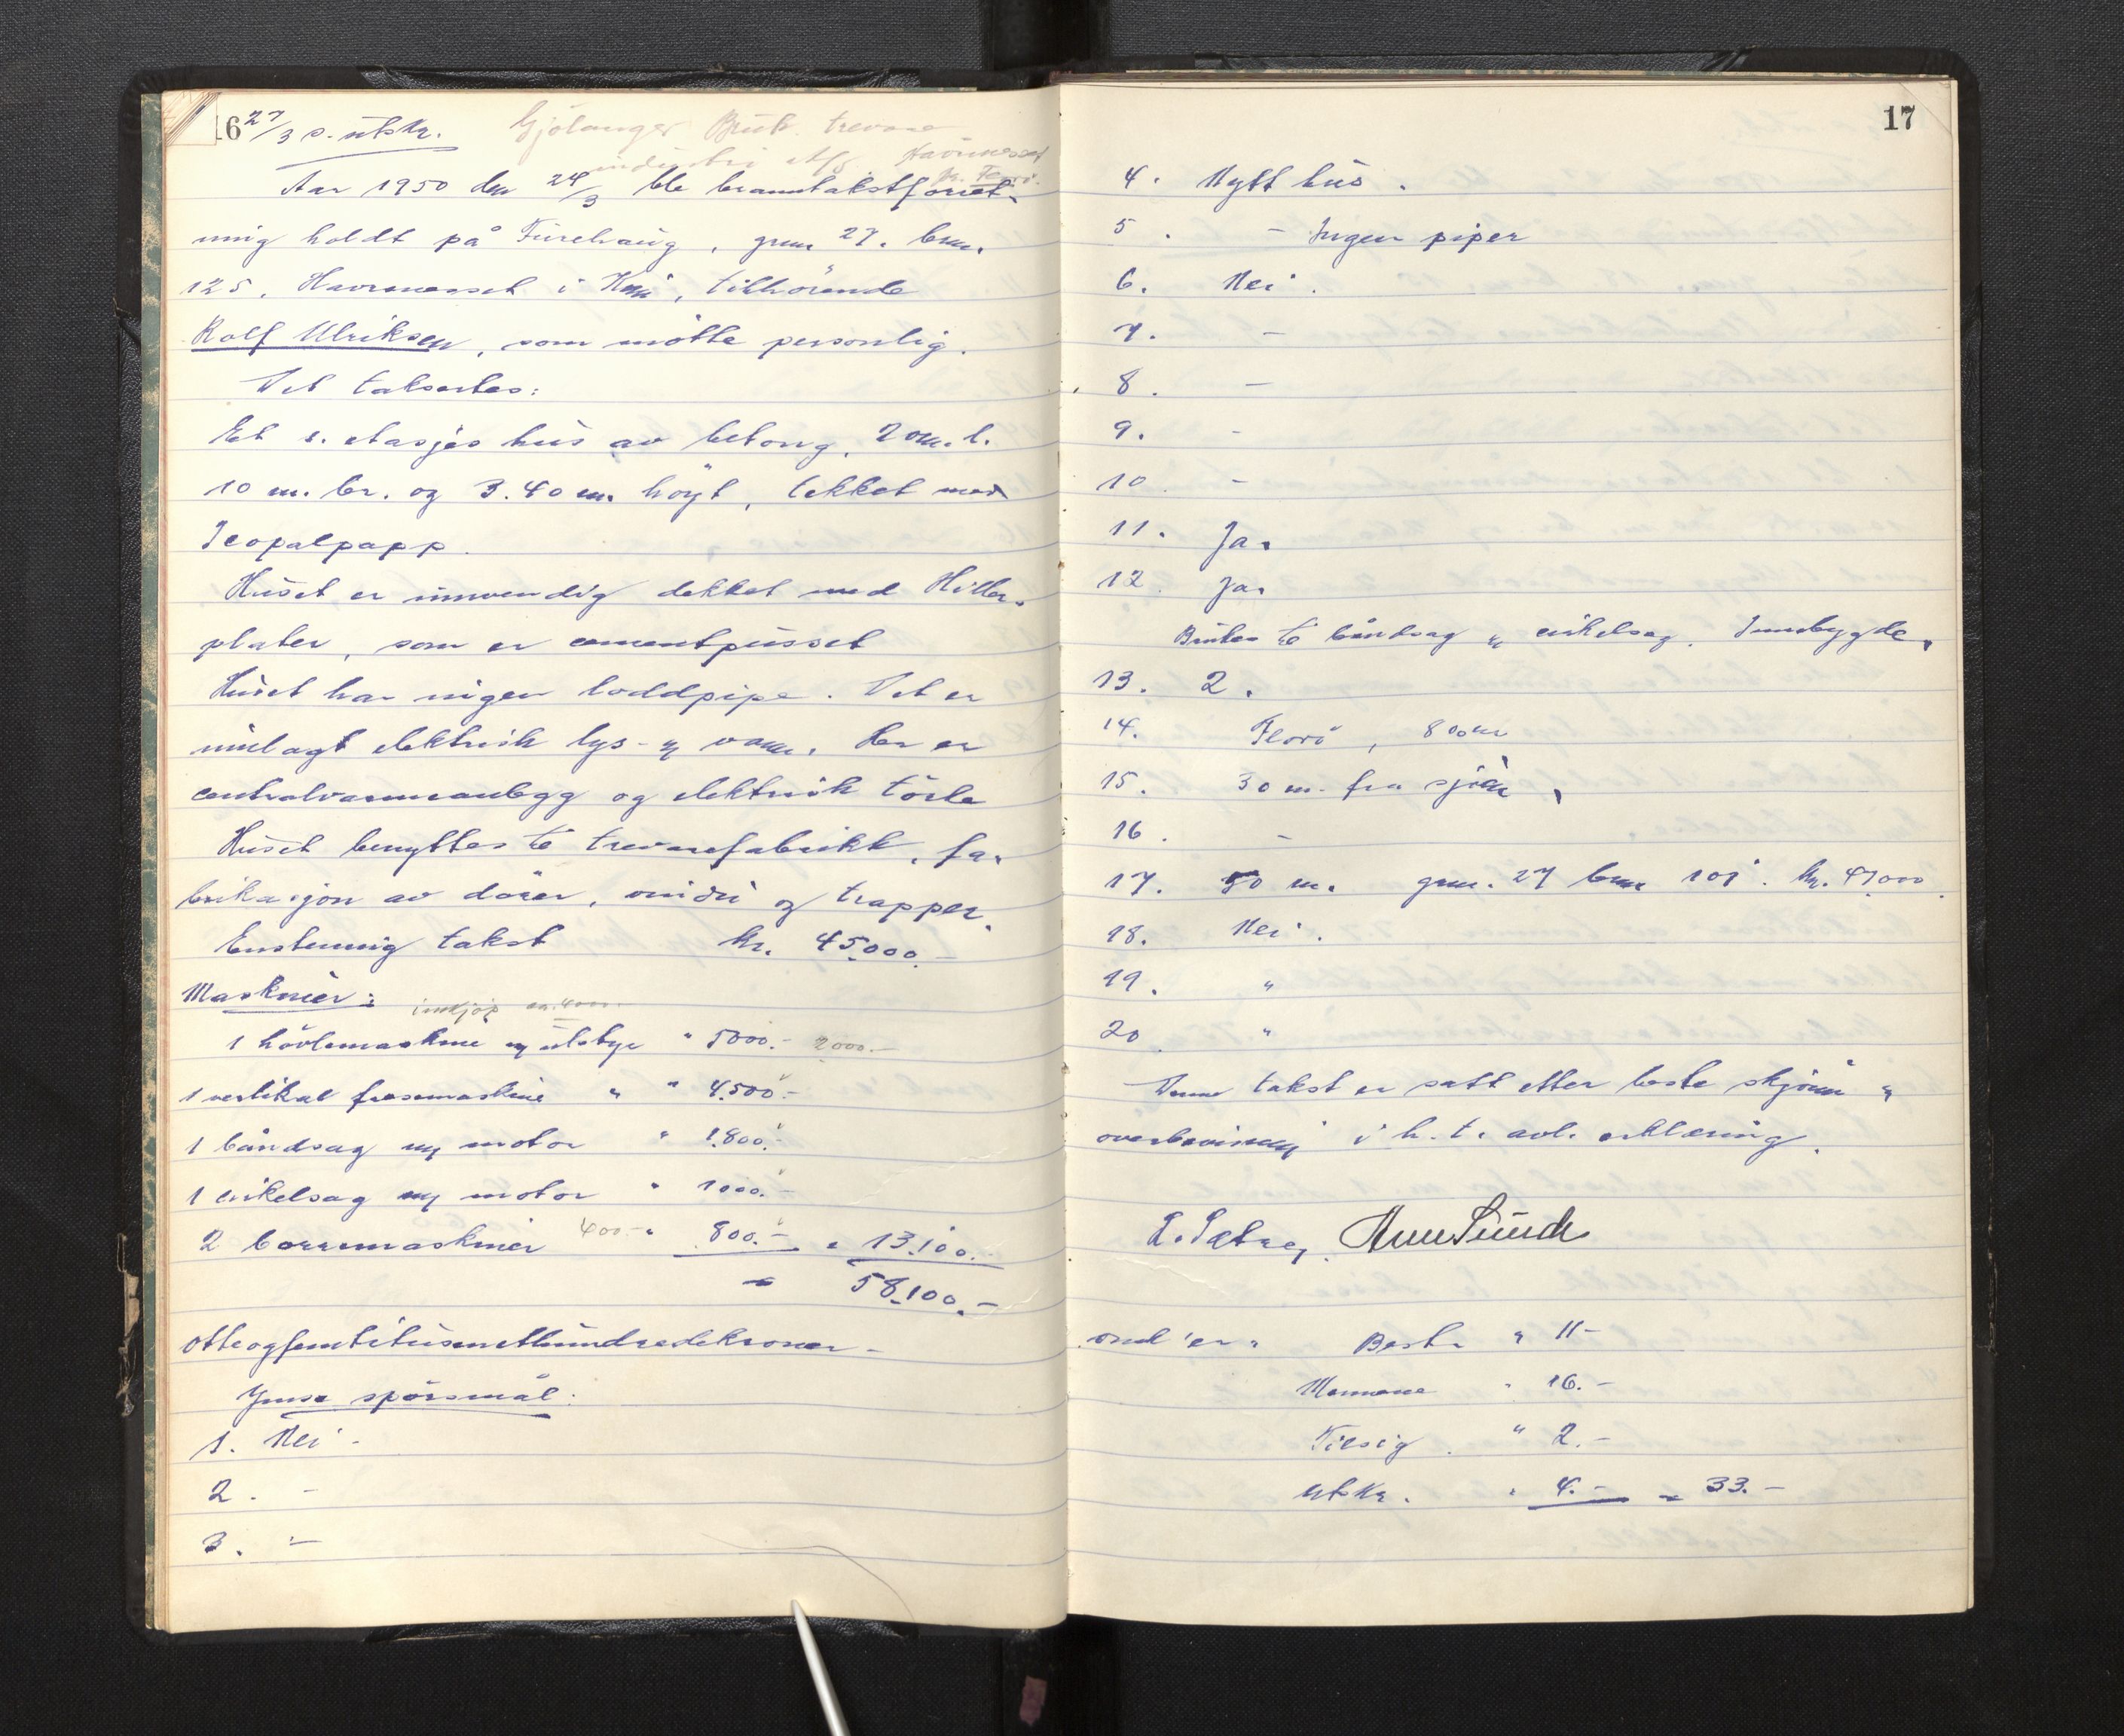 16 27/3 s. utskr. Gjölanger Bruk trevare
industri A/S. Havrenesset
pr. Florö.
Aar 1950 den 24/3 ble branntakstforret-
ning holdt på Furehaug, gnr. 27. bnr.
125, Havrenesset i Kinn, tilhörende
Rolf Ulriksen, som mötte personlig.
Det taksertes:
Et 1. etasjes hus av betong, 20 m. l.
10 m. br. og 3.40 m. höyt, tekket med
Icopalpapp.
Huset er innvendig dekket med Hiller-
plater, som er cementpusset
Huset har ingen loddpipe. Det er
innlagt elektrisk lys- og varme. Her er
centralvarmeanlegg og elektrisk törke
Huset benyttes til trevarefabrikk, fa-
brikasjon av dörer, vindu og trapper.
Enstemmig takst kr. 45.000.-
Maskiner: innkjöp ca. 4000.
1 hövlemaskine og utstyr " 5000.- 2000.-
1 vertikal fresemaskine " " 4.500.-
1 båndsag og motor " 1.800.-
1 cirkelsag og motor " 1000.-
2 borremaskiner 400.- " 800.- " 13.100.-
" 58.100.-
Otteogfemtitusenetthundredekroner -
Ymse spörsmål:
1. Nei -
2. -
3. -
17
4. Nytt hus.
5. - Ingen piper
6. Nei.
7. -
8. -
9. -
10. -
11. Ja.
12. Ja.
Brukes til båndsag og cirkelsag. Innebygde.
13. 2.
14. Florö, 800 m
15. 30 m. fra sjöen.
16. -
17. 50 m. gnr. 27 bnr 101. kr. 47.000.
18. Nei.
19. "
20. "
Denne takst er satt etter beste skjönn og
overbevisning i h. t. avl. erklæring.
L. Sætrey.
Best. " 11-
Mennene " 16.-
Tilsig. " 2.-
Utskr. " 4.- = 33.-